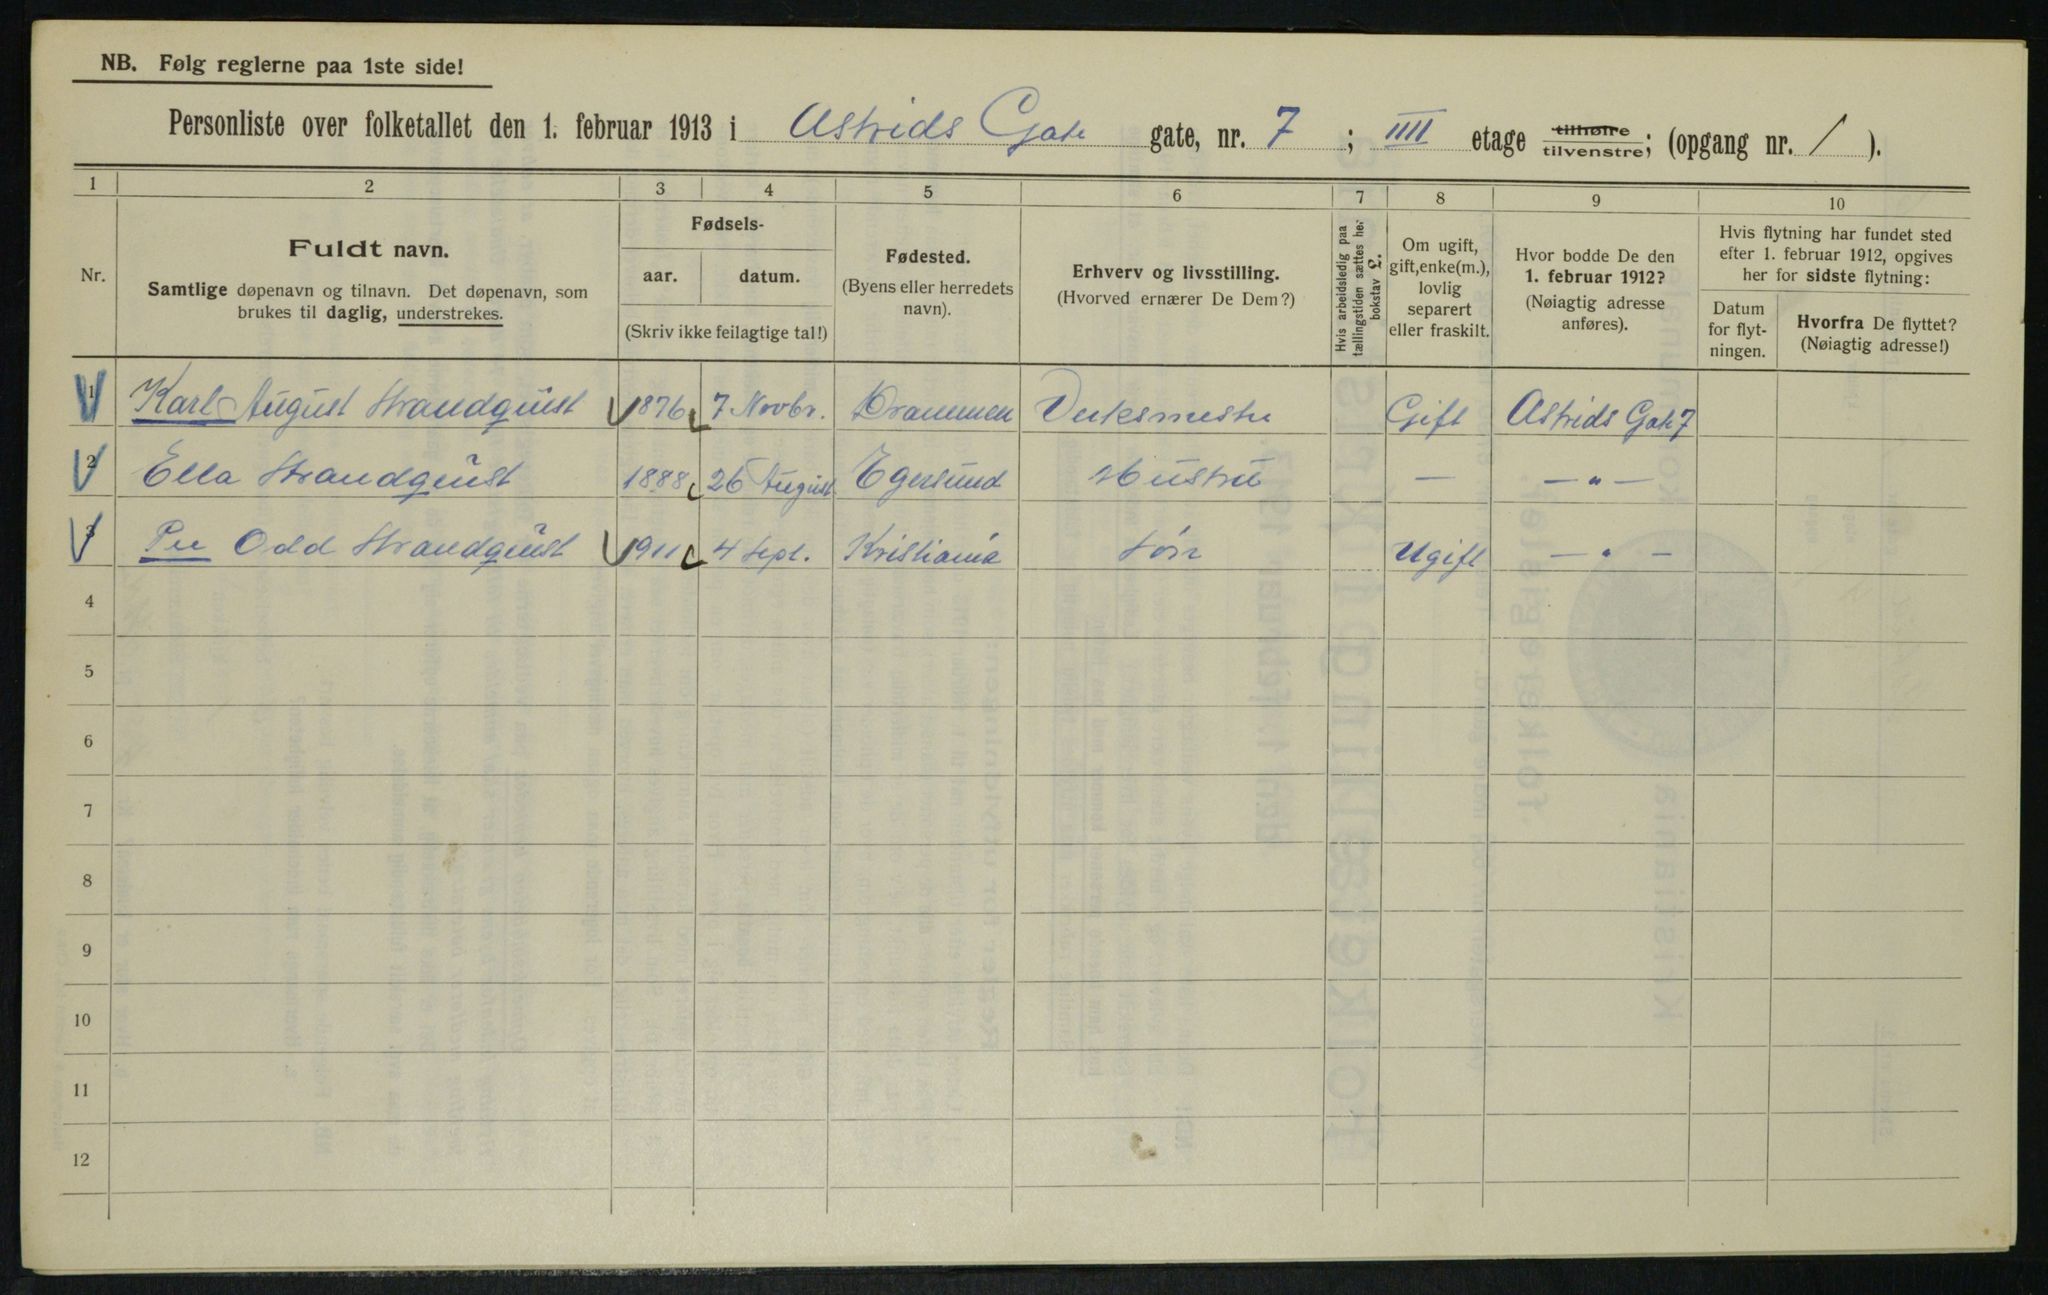 NB. Følg reglerne paa 1ste side!
Personliste over folketallet den 1. februar 1913 i Astrids Gate gate, nr. 7; IIII etage tilhøire tilvenstre; (opgang nr. 1).
1 2 3 4 5 6 7 8 9 10
Nr.
Fuldt navn.
Samtlige døpenavn og tilnavn. Det døpenavn, som
brukes til daglig, understrekes.
Fødsels-
aar. datum.
(Skriv ikke feilagtige tal!)
Fødested.
(Byens eller herredets
navn).
Erhverv og livsstilling.
(Hvorved ernærer De Dem?)
Hvis arbeidsledig paa
tællingstiden sættes her
bokstav L.
Om ugift,
gift, enke(m.),
lovlig
separert
eller fraskilt.
Hvor bodde De den
1. februar 1912?
(Nøiagtig adresse
anføres).
Hvis flytning har fundet sted
efter 1. februar 1912, opgives
her for sidste flytning:
Datum
for flyt-
ningen.
Hvorfra De flyttet?
(Nøiagtig adresse!)
1 Karl August Strandquist 1876 7 Novbr. Drammen Verksmester Gift Astrids Gate 7
2 Ella Strandquist 1888 26 August Egersund Hustru — — " —
3 Per Odd Strandquist 1911 4 Sept. Kristiania Søn Ugift — " —
4
5
6
7
8
9
10
11
12